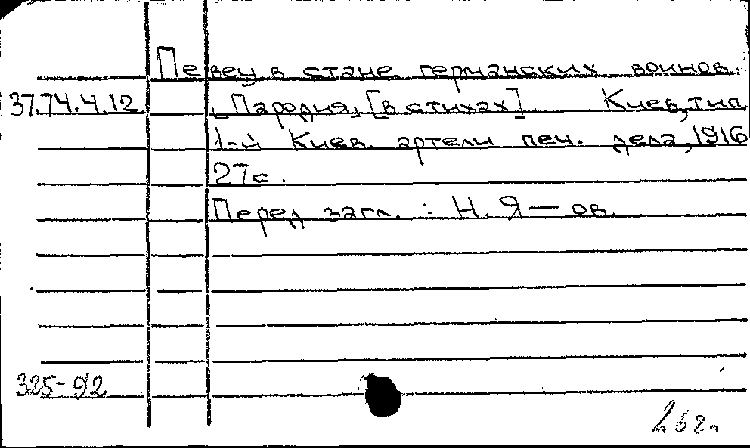 Певец в стане германских воинов.
37.74.4.12 „Пародия„ [в стихах] Киев, тип
1-й Киев. артели печ. дела, 1916
27с.
Перед загл. : Н. Я — ов.
325-92